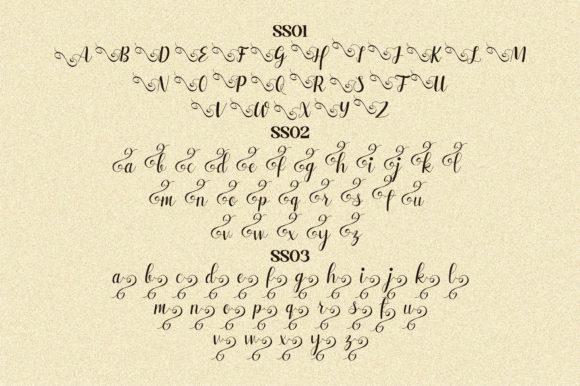 SS01
A B D E F G H I J K L M
N O P Q R S T U
V W X Y Z
SS02
a b c d e f g h i j k l
m n o p q r s t u
v w x y z
SS03
a b c d e f g h i j k l
m n o p q r s t u
v w x y z